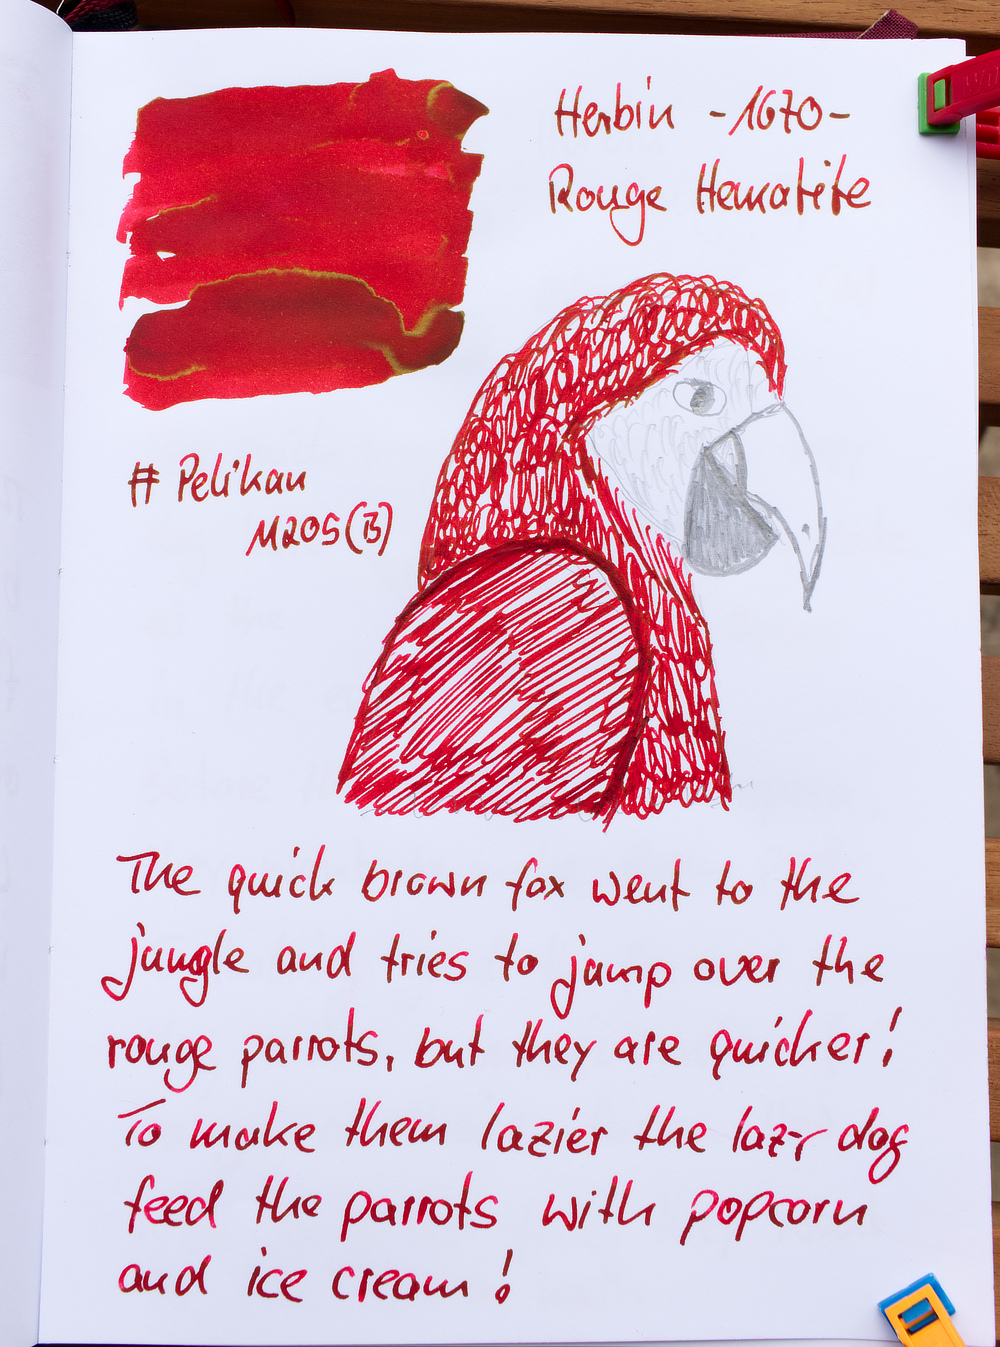 Herbin -1670-
Rouge Hematite
# Pelikan
M205 (B)
The quick brown fox went to the
jungle and tries to jump over the
rouge parrots, but they are quicker!
To make them lazier the lazy dog
feed the parrots with popcorn
and ice cream!